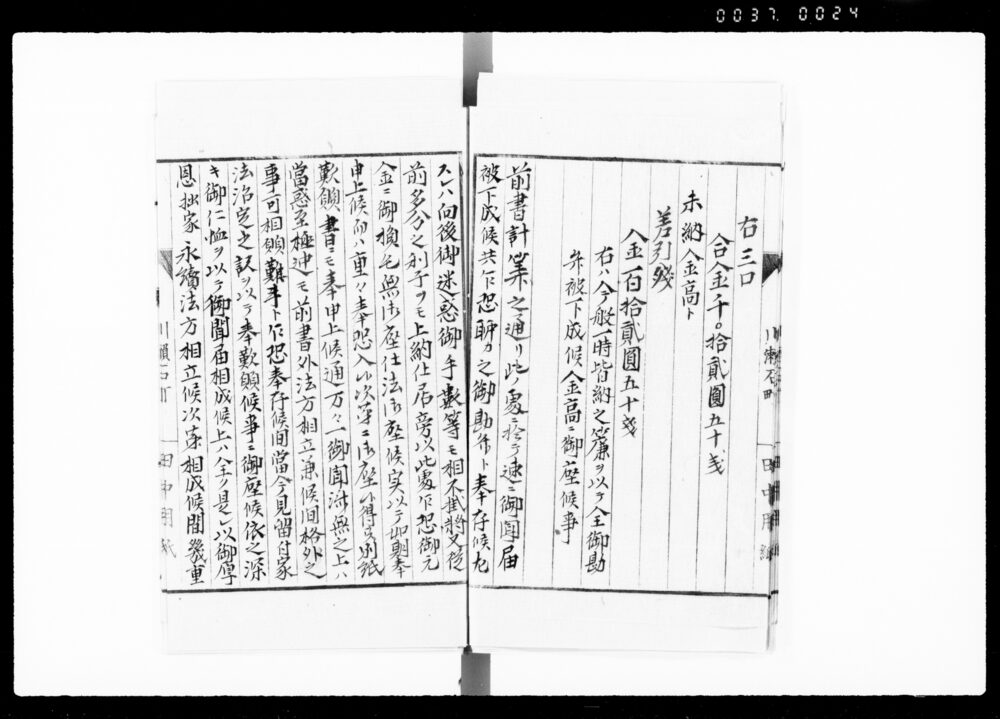 0037 0024
右三口
合金千〇拾貳圓五十戔
未納金高ト
差引残
金百拾貳圓五十戔
右ハ今般一時皆納之簾ヲ以テ全御勘
弁被下成候金高ニ御座候事
前書計算之通リ此ノ處ニ於テ速ニ御聞届
被下成候共乍恐聊カ之御勘弁ト奉存候尤
スレハ向後御迷惑御手數等モ相不掛將又後
前多分之利子ヲモ上納仕居旁以此處乍恐御元
金ニ御損毛無御座仕法御座候実以テ如斯奉
申上候而ハ重々奉恐入候次第ニ御座候得共別紙
歎願書ニモ奉申上候通万々一御聞済無之上ハ
當惑至極迚モ前書外法方相立兼候間格外之
事可相願難事ト乍恐奉存候間當今見留付家
法治定之訳ヲ以テ奉歎願候事ニ御座候依之深
キ御仁恤ヲ以テ御聞届相成候上ハ全ク是レ以御厚
恩拙家永續法方相立候次第相成候間幾重
田中用紙